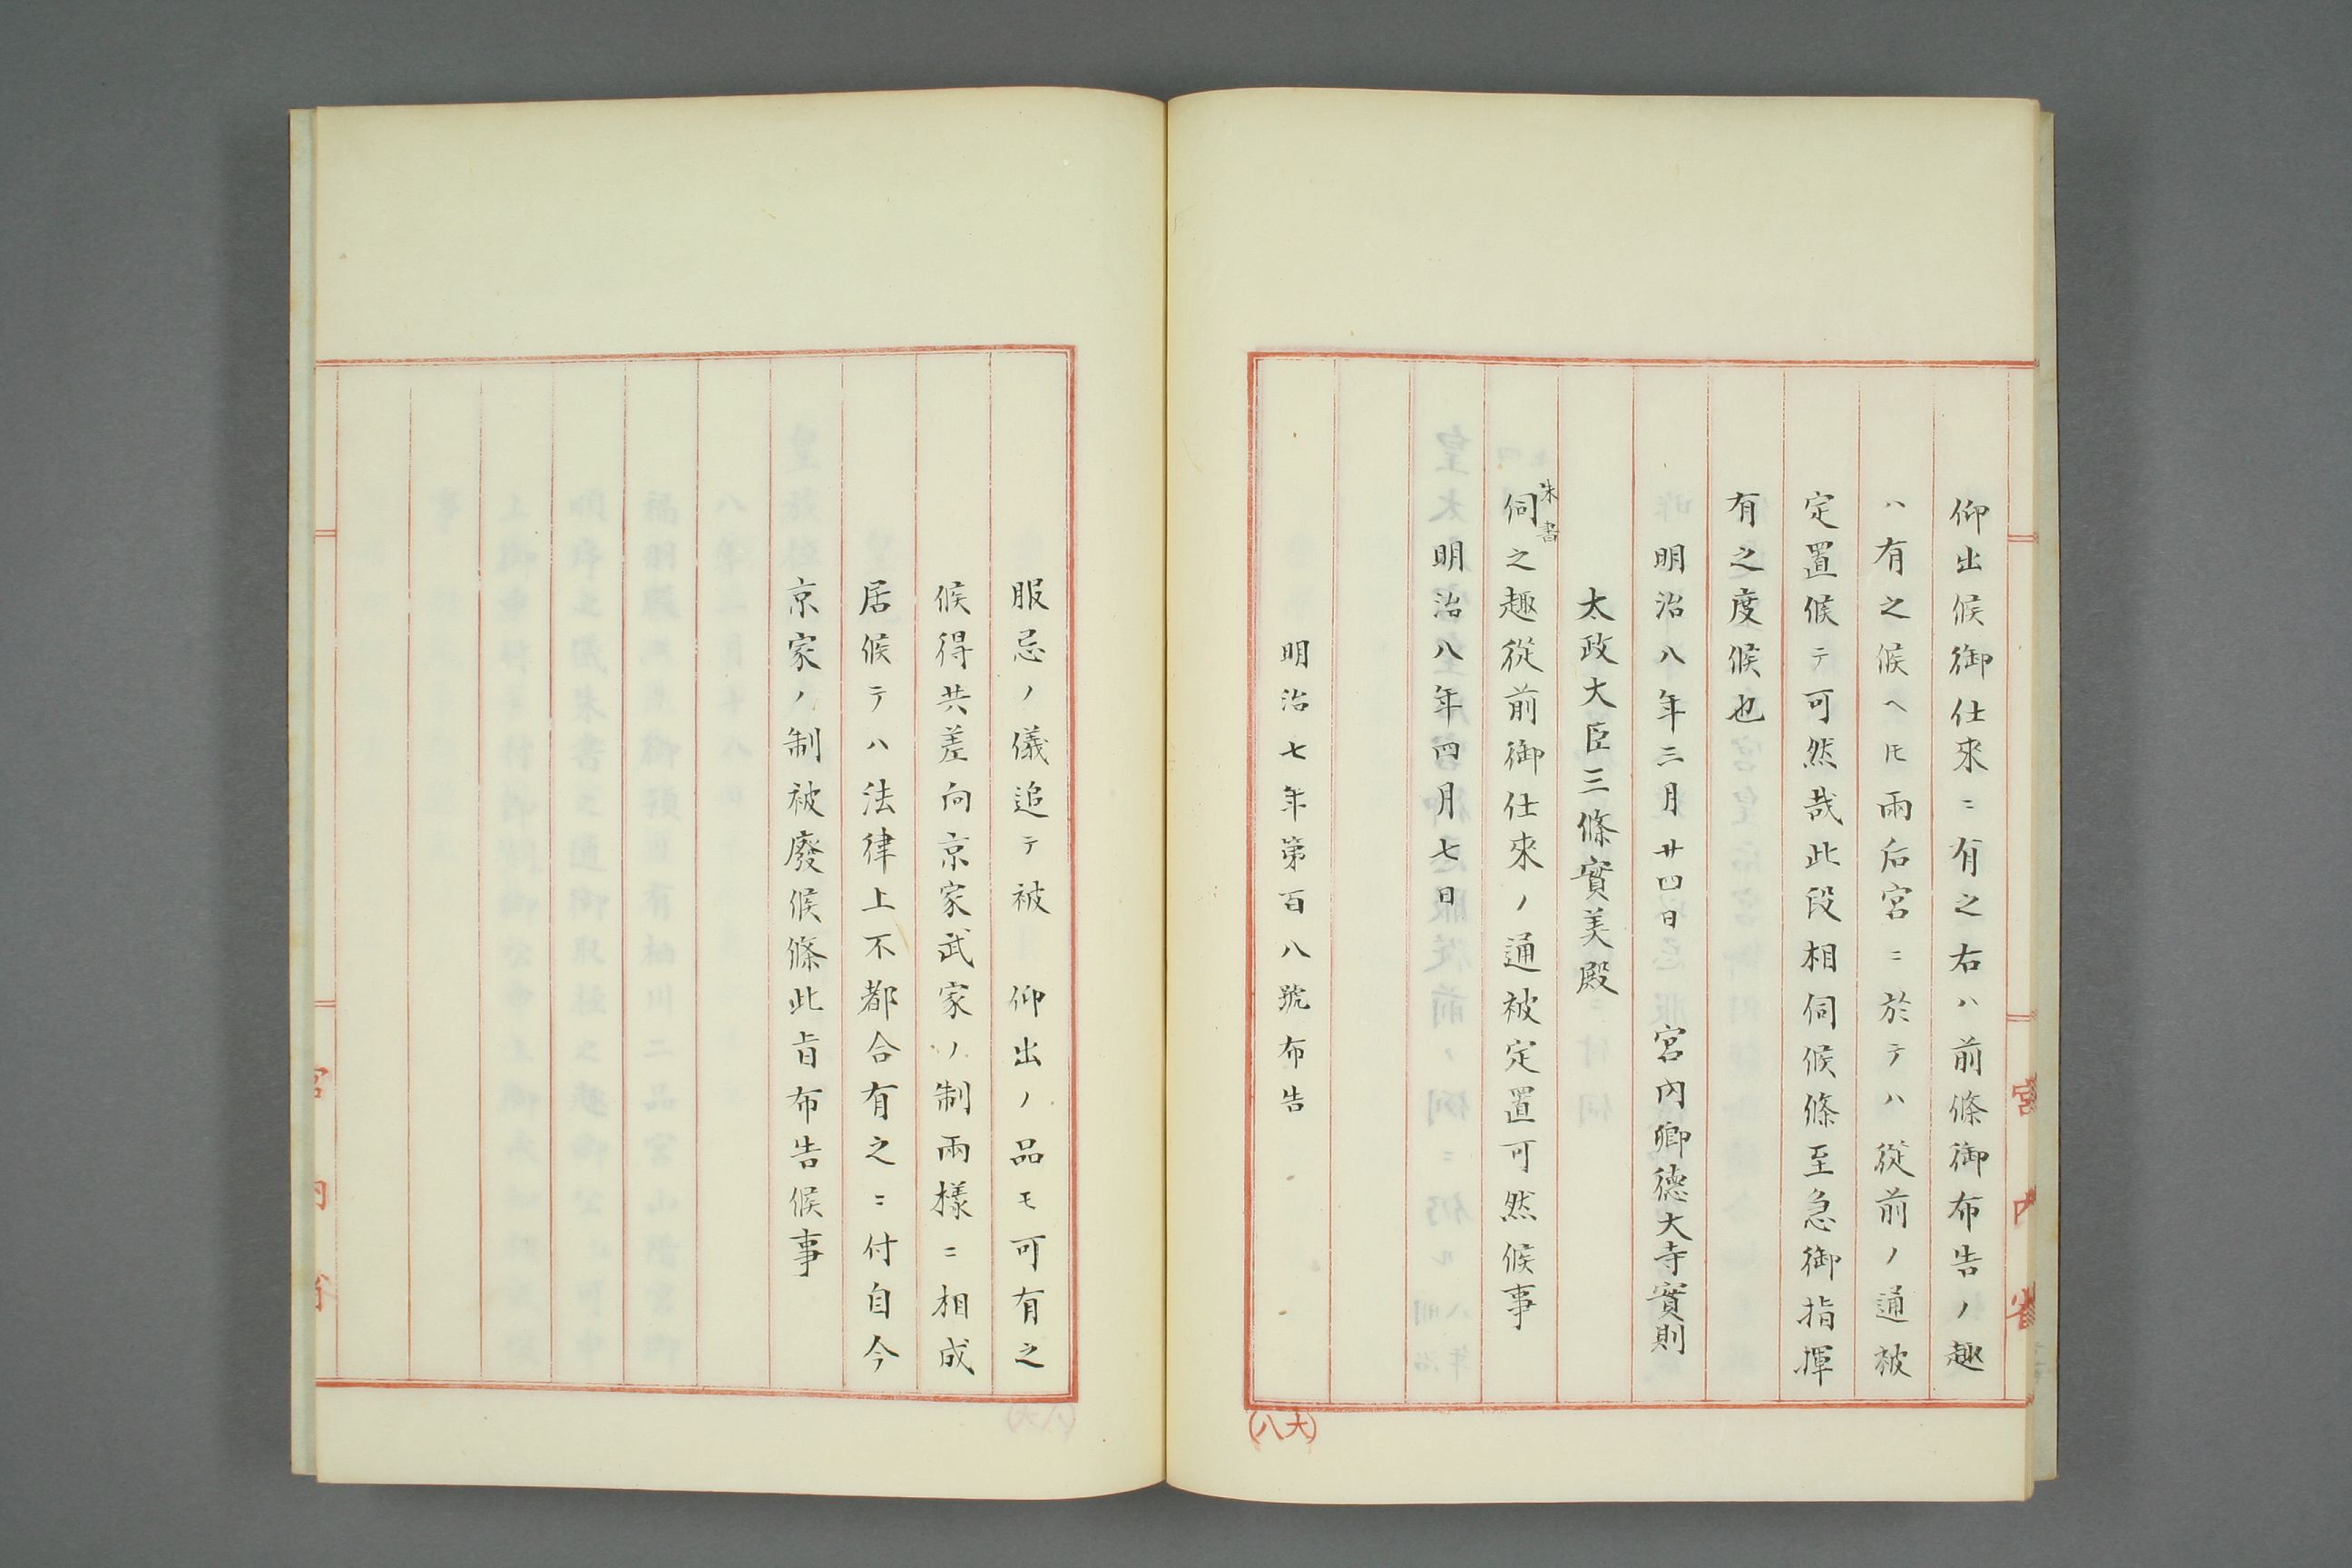 仰出候御仕來ニ有之右ハ前條御布告ノ趣
ハ有之候ヘ𪜈兩后宮ニ於テハ從前ノ通被
定置候テ可然哉此段相伺候條至急御指揮
有之度候也
明治八年三月廿四日 宮內卿德大寺實則
太政大臣三條實美殿
朱書
伺之趣從前御仕來ノ通被定置可然候事
明治八年四月七日
明治七年第百八號布告
服忌ノ儀追テ被 仰出ノ品モ可有之
候得共差向京家武家ノ制兩樣ニ相成
居候テハ法律上不都合有之ニ付自今
京家ノ制被廢候條此旨布告候事
宮內省
(大八)